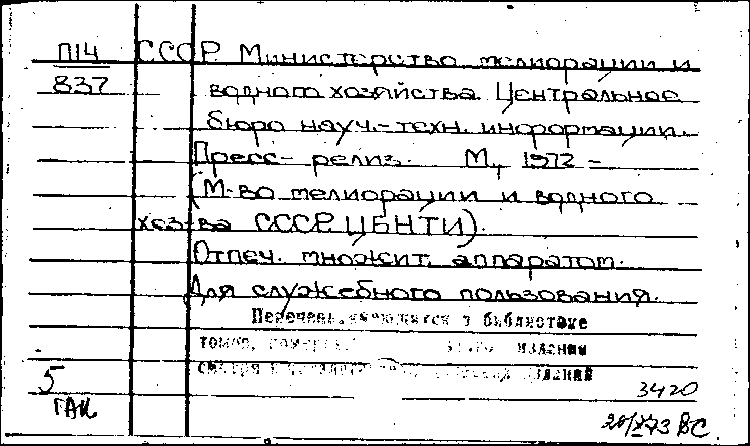 П14 СССР. Министерство мелиорации и
837 водного хозяйства. Центральное
бюро науч.-техн. информации.
Пресс-релиз. М., 1972 -
(М-во мелиорации и водного
хоз-ва СССР. ЦБНТИ).
Отпеч. множит. аппаратом.
Для служебного пользования.
Перечень имеющихся в библиотеке
томов, издания
изданий
5 3420
ГАК 20/X73 ВС